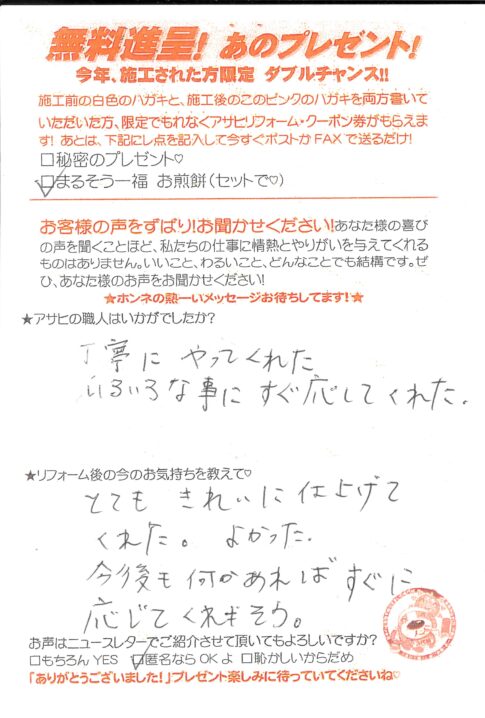 無料進呈! あのプレゼント!
今年、施工された方限定 ダブルチャンス!!
施工前の白色のハガキと、施工後のこのピンクのハガキを両方書いて
いただいた方、限定でもれなくアサヒリフォーム・クーポン券がもらえま
す! あとは、下記にレ点を記入して今すぐポストかFAXで送るだけ!
□秘密のプレゼント♡
☑まるそう一福 お煎餅(セットで◇)
お客様の声をずばり!お聞かせください!あなた様の喜び
の声を聞くことほど、私たちの仕事に情熱とやりがいを与えてくれる
ものはありません。いいこと、わるいこと、どんなことでも結構です。ぜ
ひ、あなた様のお声をお聞かせください!
★ホンネの熱ーいメッセージお待ちしてます!★
★アサヒの職人はいかがでしたか?
丁寧に やってくれた
いろいろな事に すぐ応してくれた。
★リフォーム後の今のお気持ちを教えて♡
とても きれいに仕上げて
くれた。 よかった.
今後も何かあれば すぐに
応じてくれそう。
お声はニュースレターでご紹介させて頂いてもよろしいですか?
□もちろん YES ☑匿名なら OK よ □恥かしいからだめ
「ありがとうございました!」プレゼント楽しみに待っていてくださいね♡